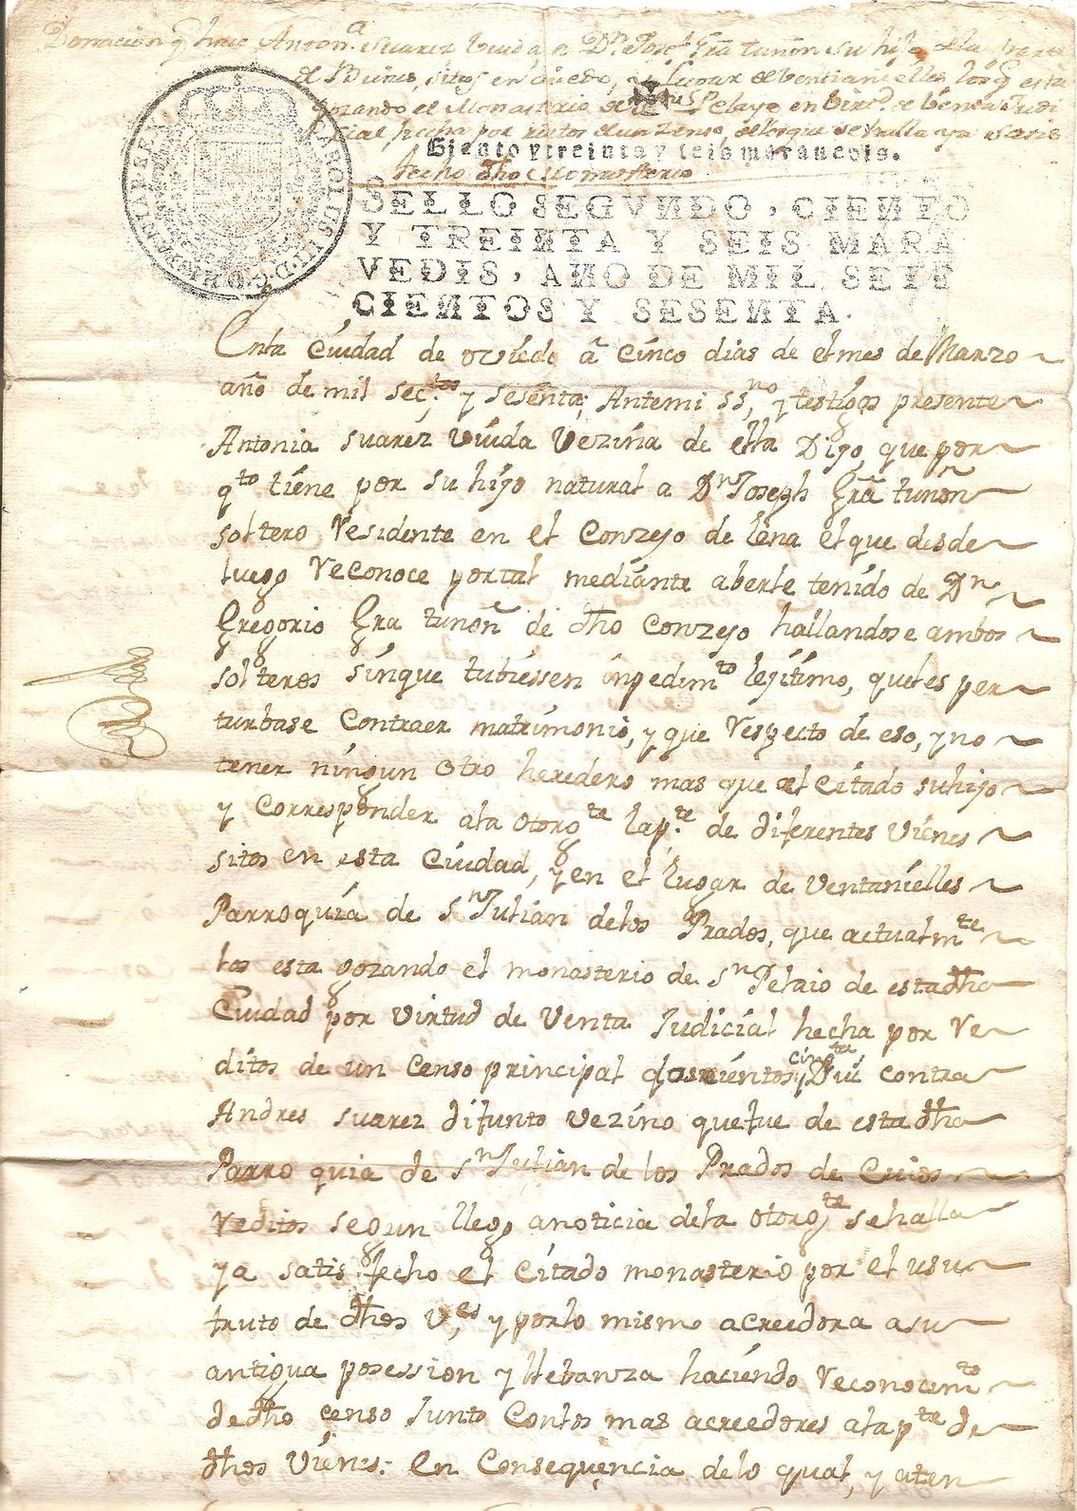 Donacion q hace Anton.a Suarez biuda a Dn. Josef Gra tuñon su hijo de la parte
de Vienes, sitos en Oviedo, y Lugar de Ventanielles los q esta
gozando el Monasterio de Sn Pelayo en birtd. de benta Judi
cial fecha por reditos de un zenso, de los que se halla ya satis
Ciento y treinta y seis marauedis.
fecho dho Monasterio
SELLO SEGVNDO, CIENTO
Y TREINTA Y SEIS MARA
VEDIS, AÑO DE MIL SETE
CIENTOS Y SESENTA.
CAROLUS III D G HISPANIAR REX
Enla Ciudad de oviedo a Cinco dias de el mes de Marzo
año de mil setez.tos y sesenta; Antemi ss.no y testigos presente
Antonia suarez Viuda Vezina de ella Dijo, que por
q.to tiene por su hijo natural a Dn Joseph Gra tuñon
soltero Residente en el Conzejo de lena el que desde
luego Reconoce portal mediante aberle tenido de Dn
Gregorio Gra tunoñ de dho Conzejo hallandose ambos
solteros sinque tubiessen inpedim.to lejitimo, queles per
turbase Contraer matrimonio, y que Respecto de eso, y no
tener ningun otro heredero mas que el Citado suhijo
y Corresponder ala otorg.te lap.te de diferentes Vienes
sitos en esta Ciudad, y en el lugar de Ventanielles
Parroquia de Sn Julian delos Prados, que actualm.te
los esta gozando el monasterio de Sn Pelaio de estadha
Ciudad por Virtud de Venta Judicial hecha por Re
ditos de un Censo principal contra
Andres suarez difunto Vezino quefue de esta dha
Parro quia de Sn Julian de los Prados de Cuios
Reditos segun llego anoticia dela otorg.te sehalla
ya satis fecho el Citado monasterio por el usu
fruto de dhos V.es y porlo mismo acreedora asu
antigua posession y llebanza haciendo Reconocim.to
dedho censo Junto Conlos mas acreedores ala p.te de
dhos Vienes: En Consequencia delo qual, y aten